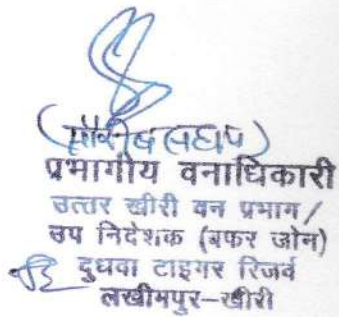 प्रभागीय वनाधिकारी
उत्तर खीरी वन प्रभाग/
उप निदेशक (बफर जोन)
दुधवा टाइगर रिजर्व
लखीमपुर-खीरी